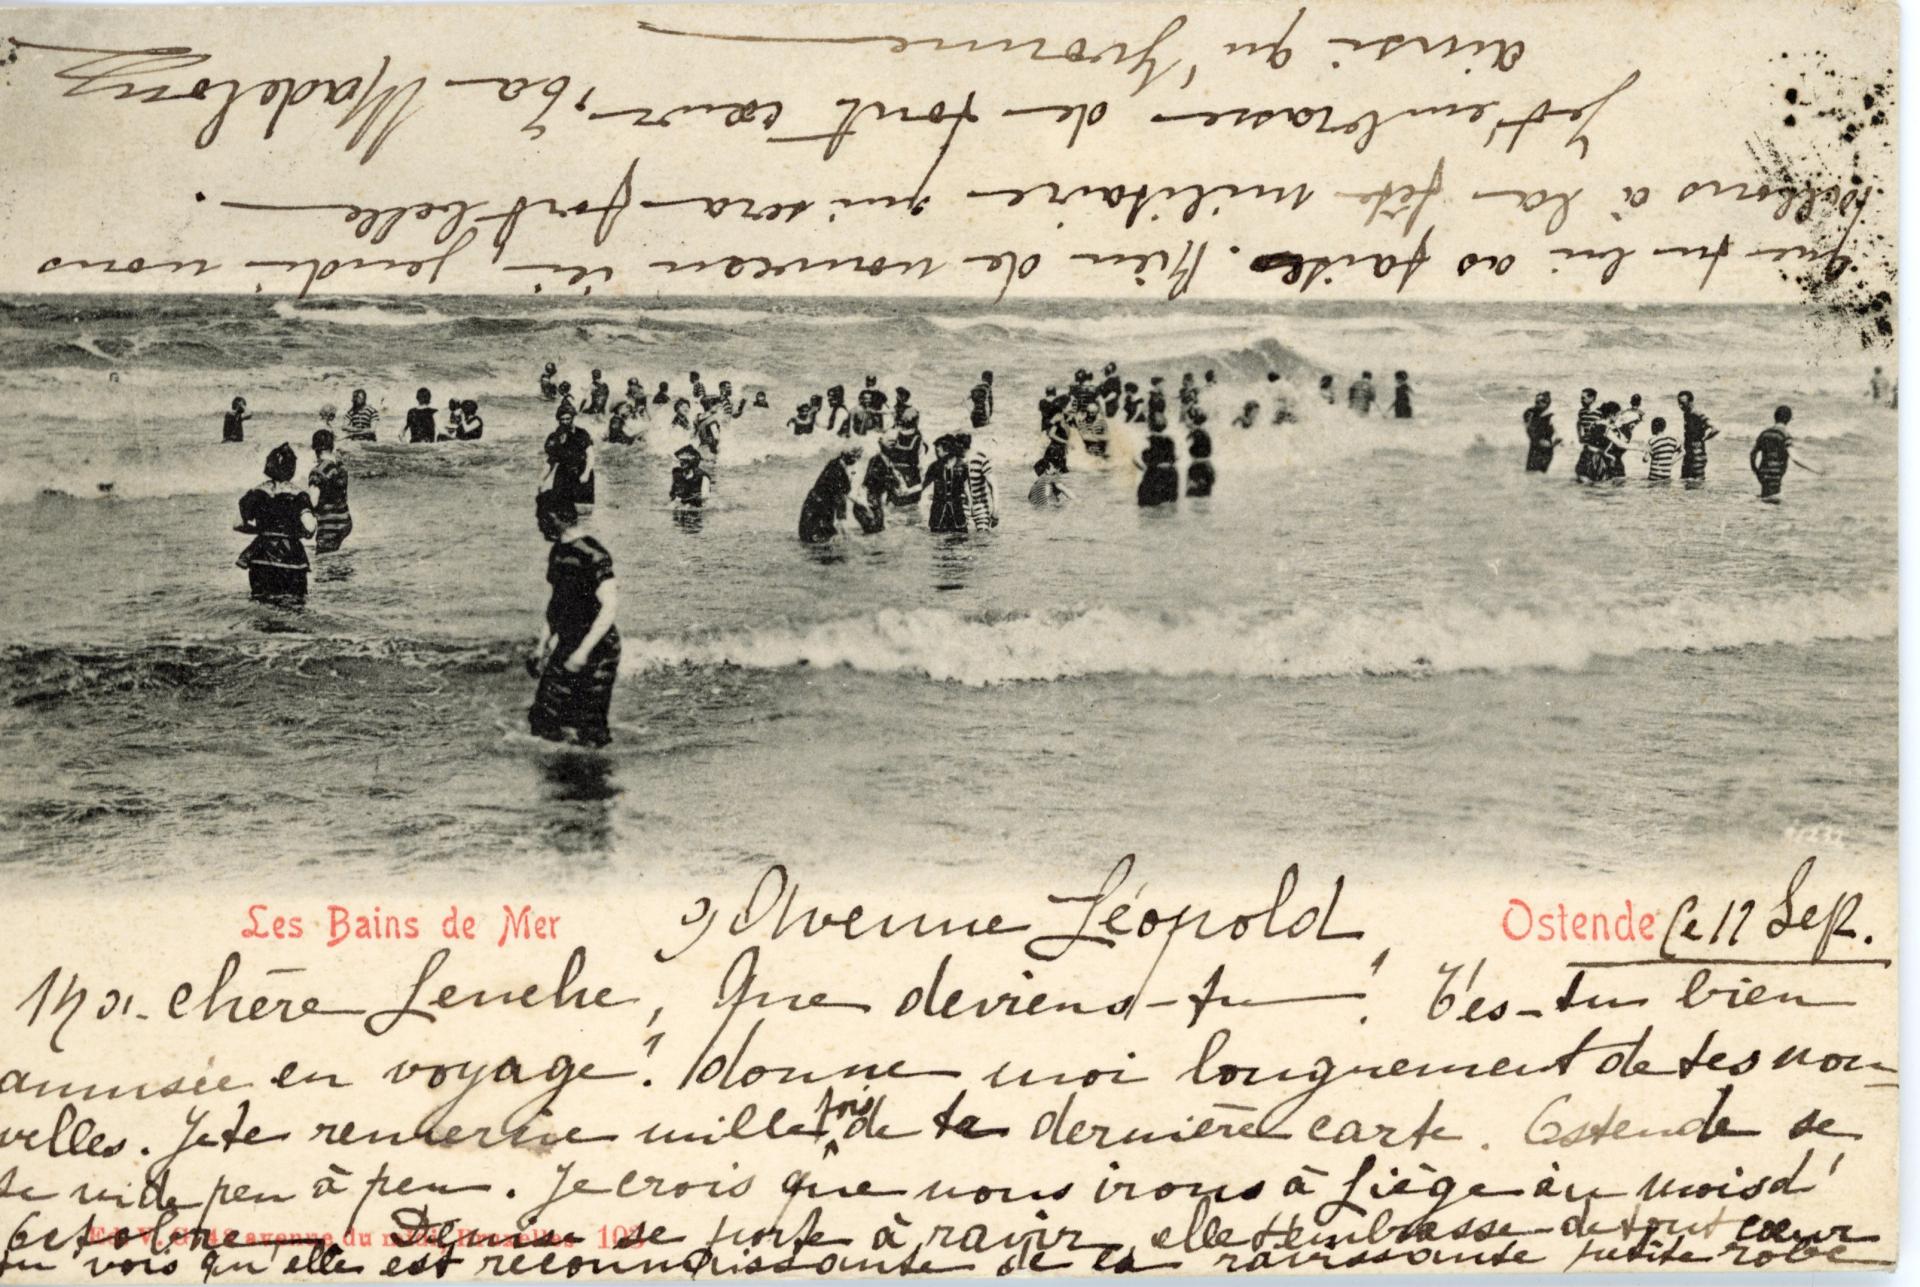 Les Bains de Mer
9 Avenue Léopold
Ostende le 17 Sept.
Ma chère Lenche, Que deviens-tu? T'es-tu bien
amusée en voyage? donne moi longuement de tes nou-
velles. Je te remercie mille fois de ta dernière carte. Ostende se
se vide peu à peu. Je crois que nous irons à Liège au mois d'
Octobre. Denise se porte à ravir, elle t'embrasse de tout cœur
tu vois qu'elle est reconnaissante de la ravissante petite robe
Ed. V. G. 48 avenue du midi, Bruxelles 103
que tu lui as faites. Rien de nouveau ici, jeudi nous
allons à la fête militaire qui sera fort belle.
Je t'embrasse de tout cœur, ta Madelon
ainsi qu'Yvonne